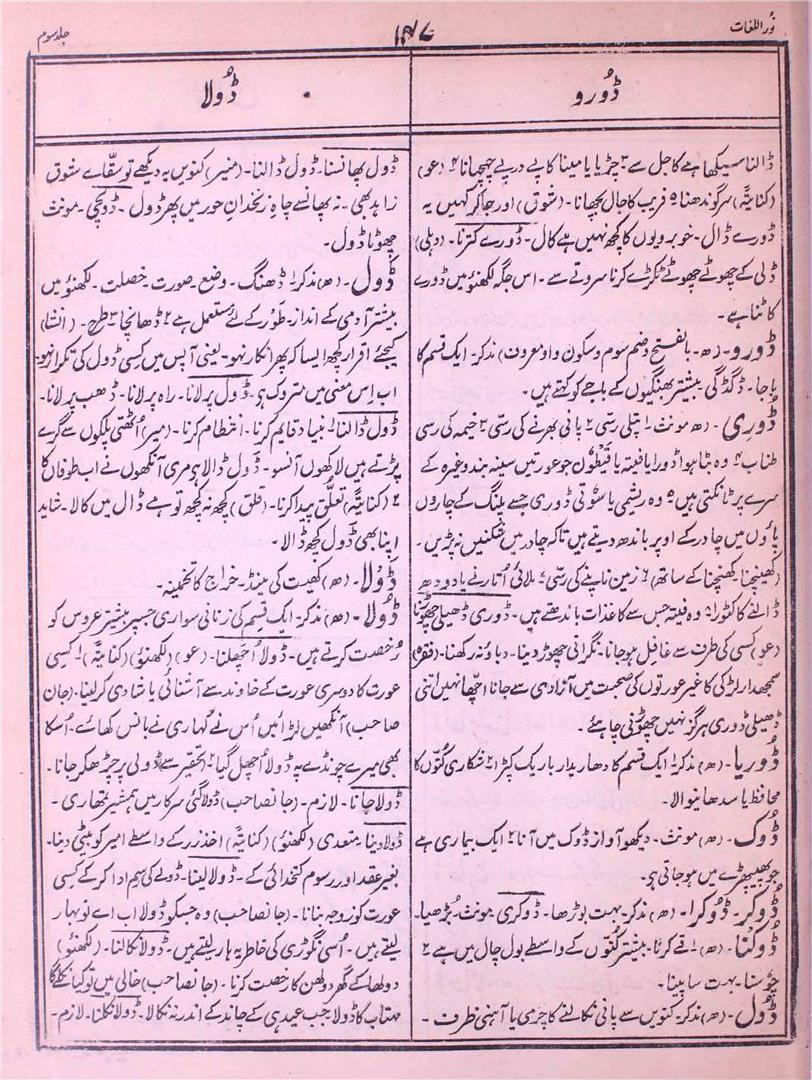 نُور اللغات
۱۴۷
جلد سوم
ڈورو
ڈُولا
ڈالنا سیکھا ہے کاجل سے ۳ چڑیا یا مینا کا پے در پے چہچہانا ۴ (عو)
(کنایۃً) سر گوندھنا ۵ فریب کا جال بچھانا۔ (شوق) اور جا کر کہیں یہ
ڈورے ڈال۔ خوبرویوں کا کچھ نہیں ہے کال۔ ڈورے کترنا۔ (دہلی)
ڈلی کے چھوٹے چھوٹے ٹکڑے کرنا سروتے سے۔ اس جگہ لکھنؤ میں ڈورے
کاٹنا ہے۔
ڈورو۔ (ھ۔ بالفتح وضم سوم وسکون واو معروف) مذکر۔ ایک قسم کا
باجا۔ ڈگڈگی بیشتر بھنگیوں کے باجے کو کہتے ہیں۔
ڈُوری۔ (ھ) مونث۔ ۱ پتلی رسّی ۲ پانی بھرنے کی رسّی ۳ خیمہ کی رسی
طناب ۴ وہ بٹا ہوا ڈورا یا فیتہ یا قیطون جو عورتیں سینہ بند وغیرہ کے
سرے پر ٹانکتی ہیں ۵ وہ ریشمی یا سُوتی ڈوری جسے پلنگ کے چاروں
پاؤں میں چادر کے اوپر باندھ دیتے ہیں تاکہ چادر میں شکنیں نہ پڑیں۔
(کھینچنا۔ کھنچنا کے ساتھ) ۶ زمین ناپنے کی رسّی ۷ بلائی اُتارنے یا دودھ
ڈالنے کا کٹورا ۸ وہ فیتہ جس سے کاغذات باندھتے ہیں۔ ڈوری ڈھیلی چھوڑنا
(عو) کسی کی طرف سے غافل ہو جانا۔ نگرانی چھوڑ دینا۔ دباؤ نہ رکھنا۔ (فقرہ)
سمجھدار لڑکی کا غیر عورتوں کی صحبت میں آزادی سے جانا اچھا نہیں اتنی
ڈھیلی ڈوری ہرگز نہیں چھوڑنی چاہئے۔
ڈُوریا۔ (ھ) مذکر۔ ۱ ایک قسم کا دھاریدار باریک کپڑا ۲ شکاری کُتّوں کا
محافظ یا سدھانیوالا۔
ڈُوک۔ (ھ) مونث۔ دیکھو آواز ڈوک میں آنا ۲ ایک بیماری ہے
جو پھیپھڑے میں ہو جاتی ہو۔
ڈُوکر۔ ڈُوکرا۔ (ھ) مذکر۔ بہت بوڑھا۔ ڈوکری۔ مونث۔ بُڑھیا۔
ڈُوکنا۔ (ھ) ۱ قے کرنا۔ بیشتر کُتّوں کے واسطے بول چال میں ہے ۲
چوسنا۔ بہت سا پینا۔
ڈُول۔ (ھ) مذکر۔ کنویں سے پانی نکالنے کا چرمی یا آہنی ظرف۔
ڈول پھانسنا۔ ڈول ڈالنا۔ (منیر) کنویں یہ دیکھے تو سقّاے شوق
زاہد بھی۔ نہ پھانسے چاہِ زنخدانِ حور میں پھر ڈول۔ ڈولچی۔ مونث
چھوٹا ڈول۔
ڈَول۔ (ھ) مذکر ۱ ڈھنگ۔ وضع۔ صورت۔ خصلت۔ لکھنؤ میں
بیشتر آدمی کے انداز۔ طَور کے لئے مستعمل ہے ۲ ڈھانچا ۳ طرح۔ (انشا)
کیجئے اقرار کچھ ایسا کہ پھر انکار نہو۔ یعنی آپس میں کسی ڈول کی تکرار نہو۔
اب اِس معنی میں متروک ہی۔ ڈَول پر لانا۔ راہ پر لانا۔ ڈھب پر لانا۔
ڈَول ڈالنا ۱ بنیاد قایم کرنا۔ انتظام کرنا۔ (میر) اُٹھتی پلکوں سے گرے
پڑتے ہیں لاکھوں آنسو۔ ڈَول ڈالا ہی مری آنکھوں نے اب طوفاں کا
۲ (کنایۃً) تعلُّق پیدا کرنا۔ (قلق) کچھ نہ کچھ تو ہے ڈال میں کالا۔ شاید
اپنا بھی ڈول کچھ ڈالا۔
ڈَولا۔ (ھ) کھیت کی مینڈ۔ خراج کا تخمینہ۔
ڈُولا۔ (ھ) مذکر۔ ایک قِسم کی زنانی سواری جسپر بیشتر عروس کو
رُخصت کرتے ہیں۔ ڈولا اُچھلنا۔ (عو) (لکھنؤ) (کنایۃً) ۱ کِسی
عورت کا دوسری عورت کے خاوند سے آشنائی یا شادی کر لینا۔ (جان
صاحب) آنکھیں لڑائیں اُس نے کُہاری نے بانس کھائے۔ اُسکا
کبھی میرے چونڈے پہ ڈولا اُچھل گیا ۲ (تحقیر سے) ڈولی پر چڑھکر جانا۔
ڈولا جانا۔ لازم۔ (جانصاحب) ڈولا گئی سرکار میں ہمشیر تمھاری۔
ڈولا دینا۔ متعدی (لکھنؤ) (کنایۃً) اخذِ زر کے واسطے امیر کو بیٹی دینا۔
بغیر عقد اور رسوم کتخدائی کے۔ ڈولا لینا۔ ڈولے کی رسم ادا کر کے کسی
عورت کو زوجہ بنانا۔ (جانصاحب) وہ جسکو ڈولا اب اے نو بہار
لیتے ہیں۔ اُسی نگوڑی کی خاطر یہ ہار لیتے ہیں۔ ڈولا نکالنا۔ (لکھنؤ)
دولھا کے گھر دولھن کا رخصت کرنا۔ (جانصاحب) خالی میں تو کیا نکلے گا
مہتاب کا ڈولا۔ جب عیدہی کے چاند کے اندر نہ نکالا۔ ڈولا نکلنا۔ لازم۔